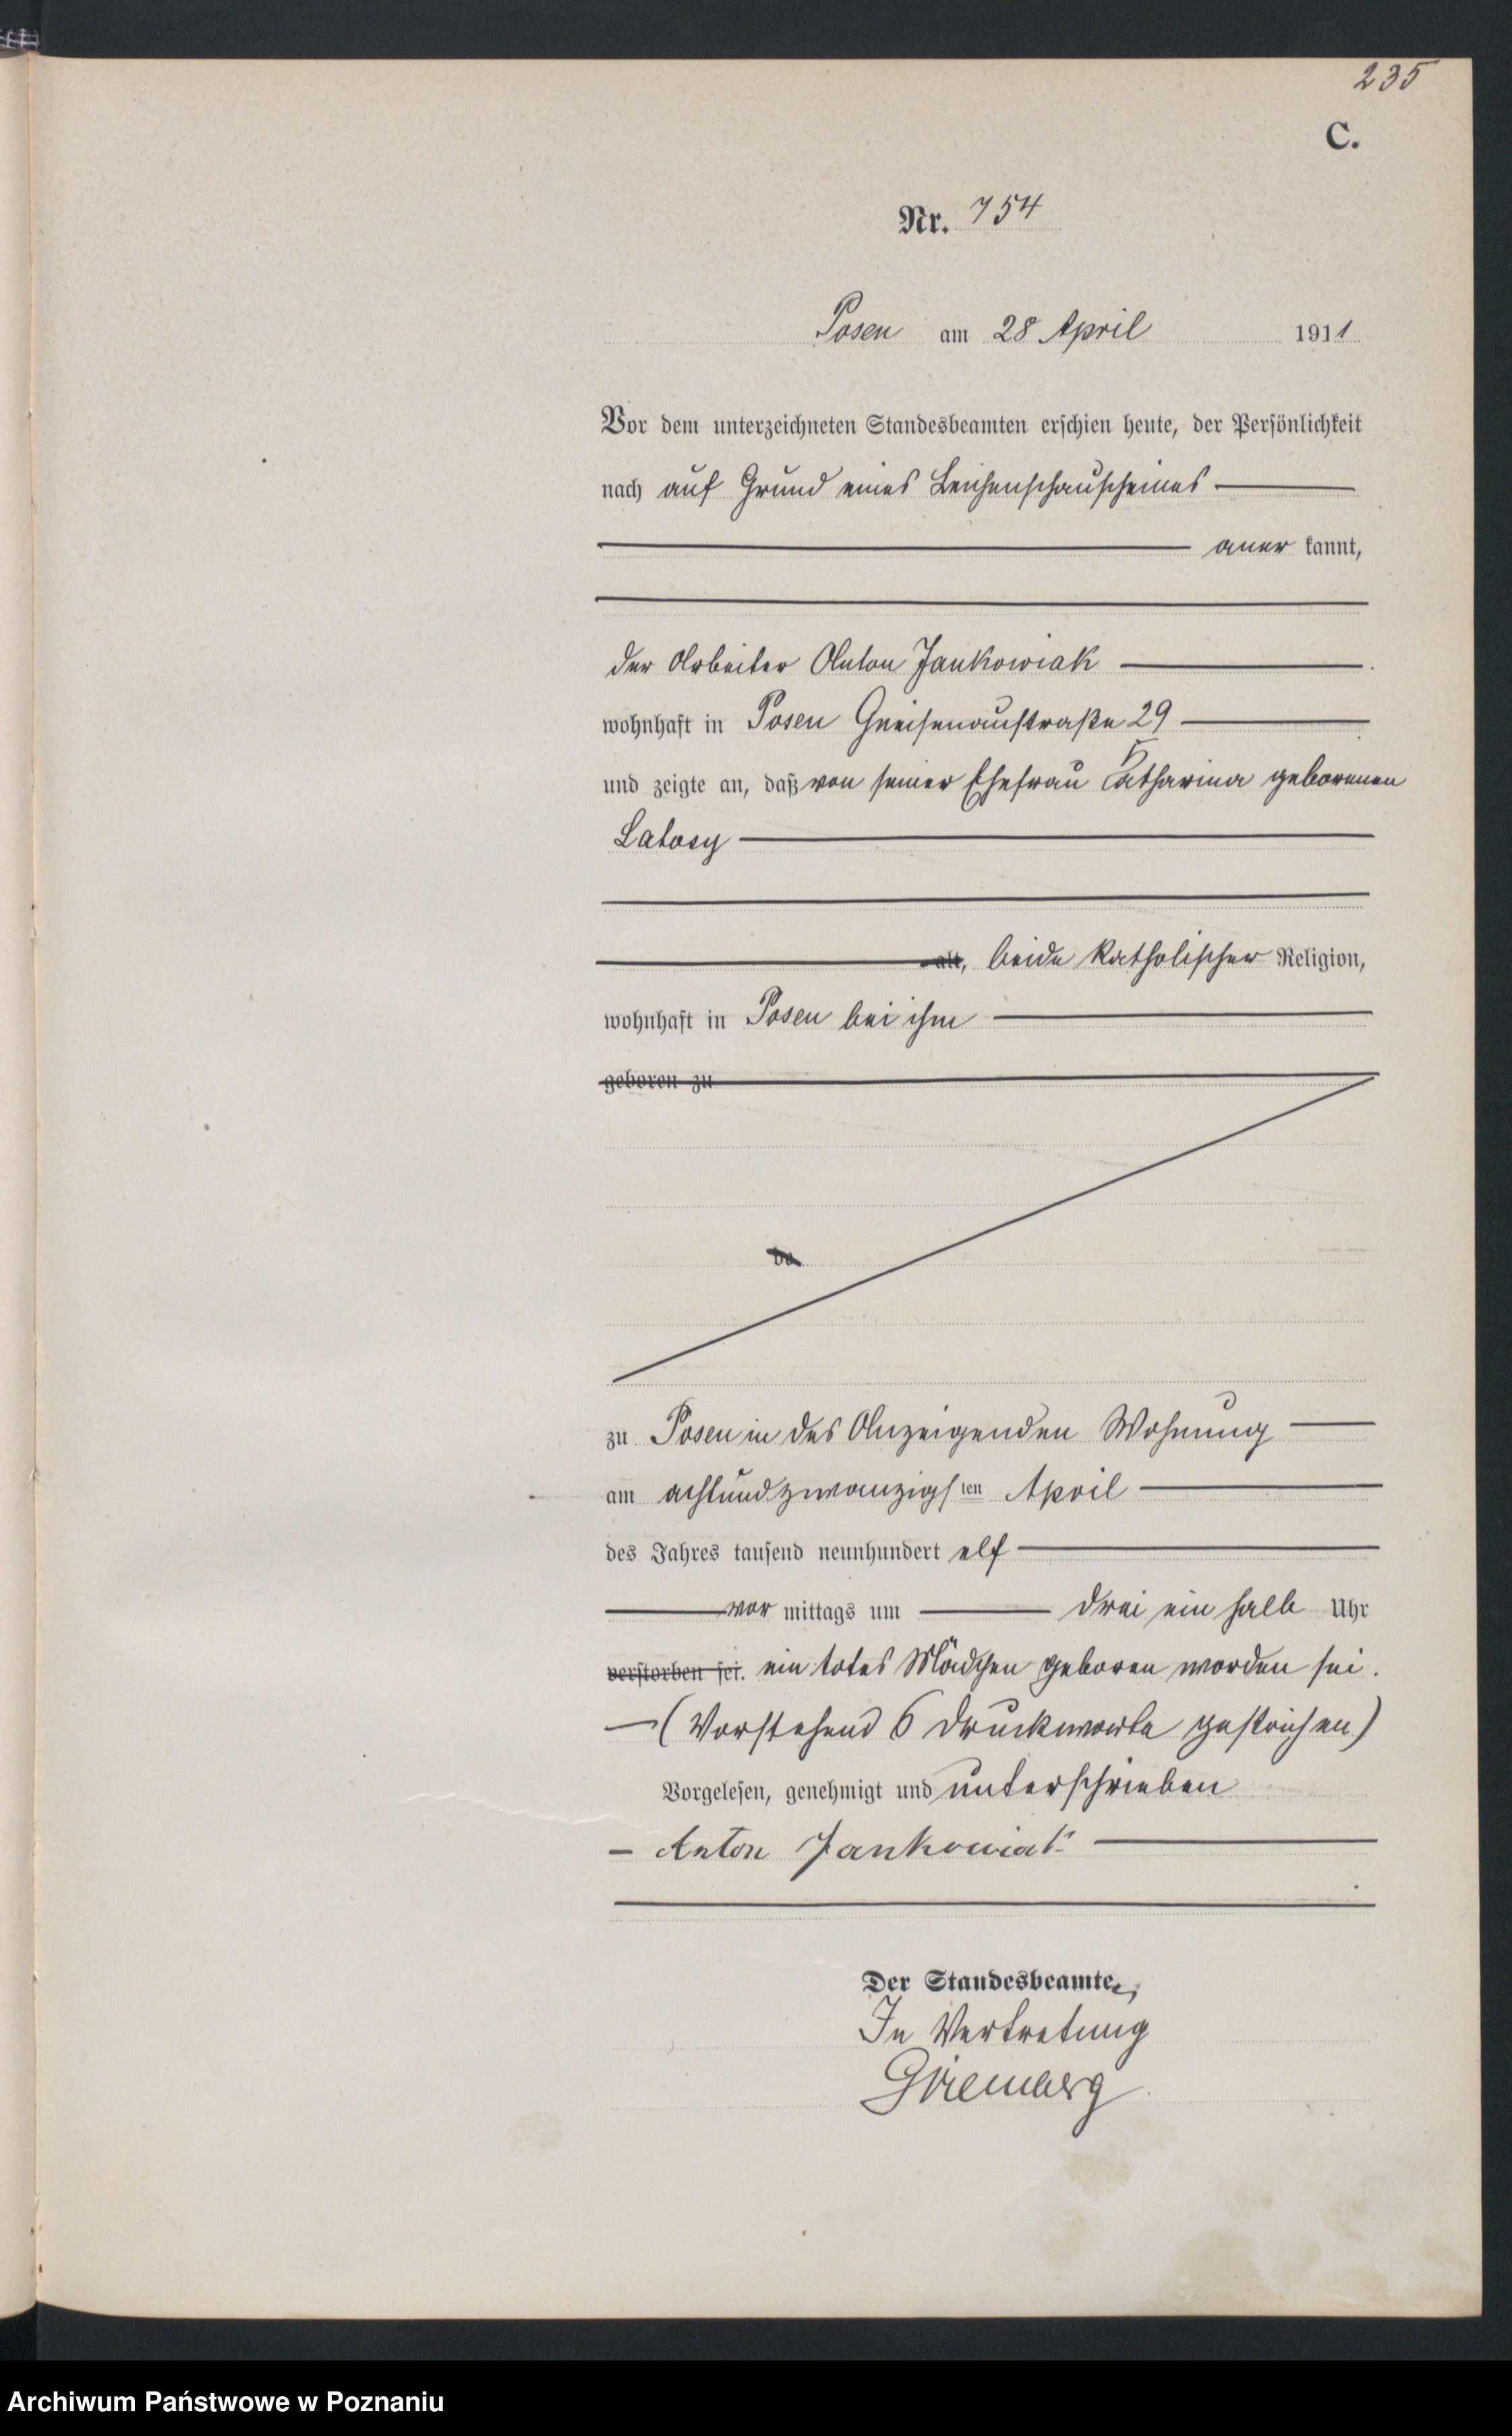 235
C.
Nr. 754
Posen am 28 April 1911
Vor dem unterzeichneten Standesbeamten erschien heute, der Persönlichkeit
nach auf Grund eines Leichenschauscheines
aner kannt,
der Arbeiter Anton Jankowiak
wohnhaft in Posen Gneisenaustraße 29
und zeigte an, daß von seiner Ehefrau Katharina geborenen
Latosy
alt, beide katholischer Religion,
wohnhaft in Posen bei ihm
geboren zu
zu Posen in des Anzeigenden Wohnung
am achtundzwanzigsten April
des Jahres tausend neunhundert elf
vor mittags um drei ein halb Uhr
verstorben sei. ein totes Mädchen geboren worden sei.
(Vorstehend 6 Druckworte gestrichen)
Vorgelesen, genehmigt und unterschrieben
Anton Jankowiak
Der Standesbeamte,
In Vertretung
Archiwum Państwowe w Poznaniu